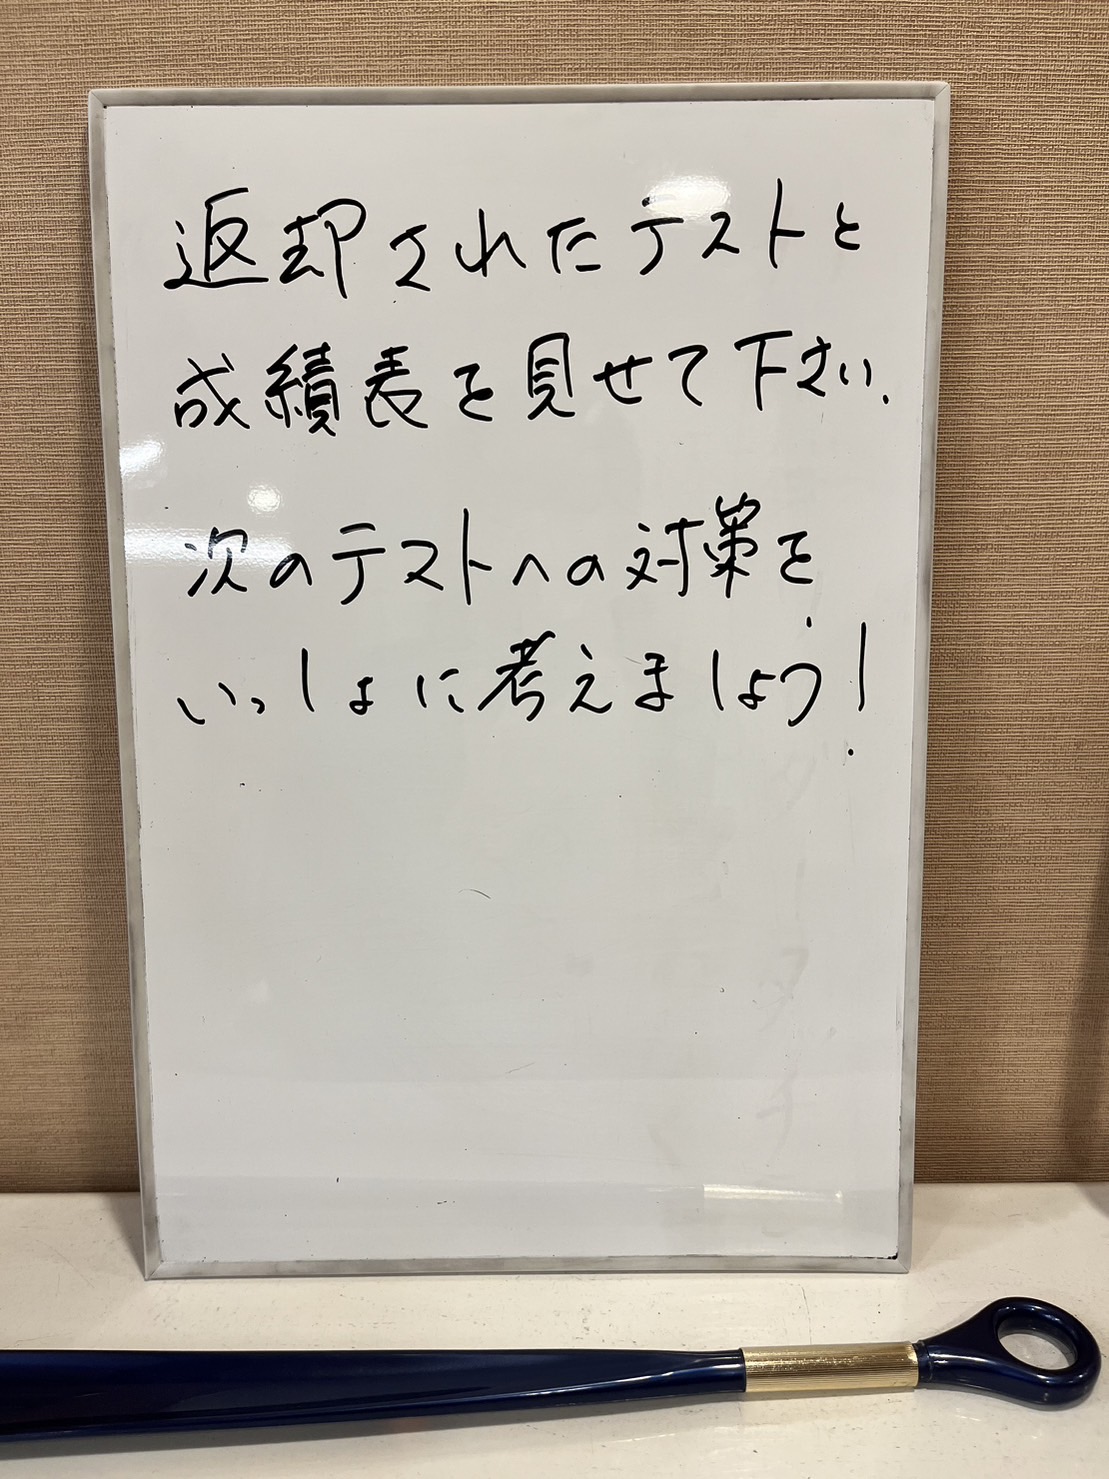 返却されたテストと
成績表を見せて下さい.
次のテストへの対策を、
いっしょに考えましょう!